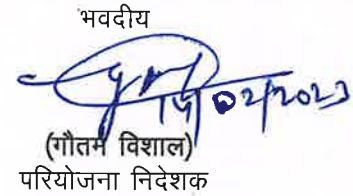 भवदीय
02/2023
(गौतम विशाल)
परियोजना निदेशक